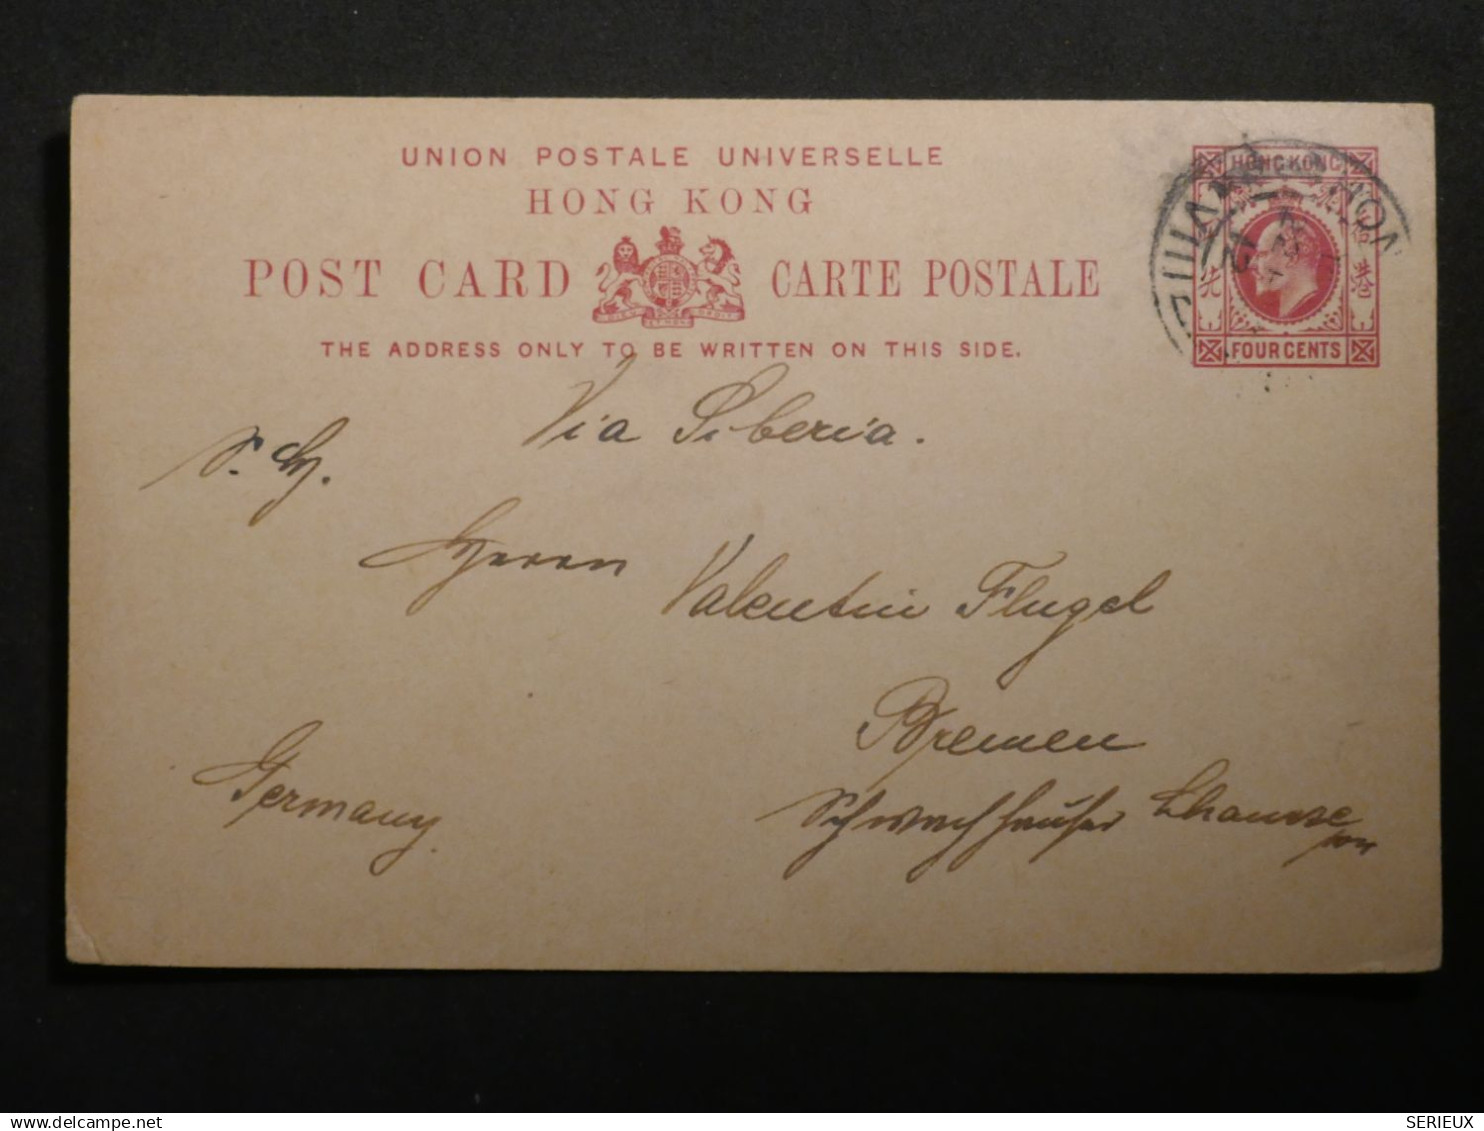 UNION POSTALE UNIVERSELLE
HONG KONG
POST CARD CARTE POSTALE
THE ADDRESS ONLY TO BE WRITTEN ON THIS SIDE.
HONG KONG
FOUR CENTS
VICTORIA
Via Siberia.
Herrn
Valentin Flugel
Bremen
Schwachhauser Chaussee
Germany.
SERIEUX